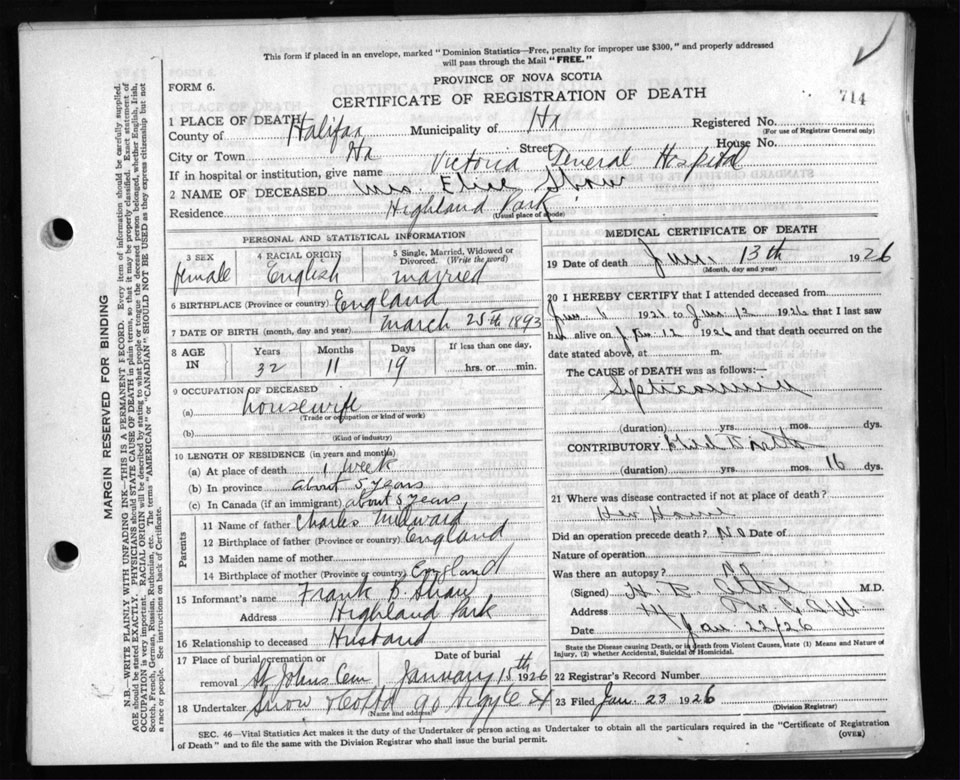 This form if placed in an envelope, marked "Dominion Statistics—Free, penalty for improper use $300," and properly addressed
will pass through the Mail "FREE."
PROVINCE OF NOVA SCOTIA
FORM 6.
CERTIFICATE OF REGISTRATION OF DEATH
714
1 PLACE OF DEATH
County of Halifax Municipality of Hx Registered No.
(For use of Registrar General only)
City or Town Hx Street House No.
If in hospital or institution, give name Victoria General Hospital
2 NAME OF DECEASED Mrs. Elise Shaw
Residence Highland Park
(Usual place of abode)
PERSONAL AND STATISTICAL INFORMATION
3 SEX female
4 RACIAL ORIGIN English
5 Single, Married, Widowed or Divorced. (Write the word) married
6 BIRTHPLACE (Province or country) England
7 DATE OF BIRTH (month, day and year) March 25th 1893
8 AGE IN Years 32 Months 11 Days 19 If less than one day, hrs. or min.
9 OCCUPATION OF DECEASED
(a) housewife
(Trade or occupation or kind of work)
(b)
(Kind of industry)
10 LENGTH OF RESIDENCE (in years and months)
(a) At place of death 1 week
(b) In province about 5 years
(c) In Canada (if an immigrant) about 5 years
Parents
11 Name of father Charles Millward
12 Birthplace of father (Province or country) England
13 Maiden name of mother
14 Birthplace of mother (Province or country) England
15 Informant's name Frank B Shaw
Address Highland Park
16 Relationship to deceased Husband
17 Place of burial, cremation or removal St Johns Cem Date of burial January 15th 1926
18 Undertaker Snow & Co Ltd 90 Argyle St
(Name and address)
MEDICAL CERTIFICATE OF DEATH
19 Date of death Jan. 13th 1926
(Month, day and year)
20 I HEREBY CERTIFY that I attended deceased from
Jan 6 1926 to Jan. 13 1926 that I last saw
her alive on Jan 12 1926 and that death occurred on the
date stated above, at m.
The CAUSE of DEATH was as follows:—
Septicaemia
(duration) yrs. mos. dys.
CONTRIBUTORY
(duration) yrs. mos. 16 dys.
21 Where was disease contracted if not at place of death?
Her Home
Did an operation precede death? No Date of
Nature of operation —
Was there an autopsy?
(Signed) M.D.
Address
Date Jan 22/26
State the Disease causing Death, or in death from Violent Causes, state (1) Means and Nature of
Injury, (2) whether Accidental, Suicidal or Homicidal.
22 Registrar's Record Number
23 Filed Jan. 23 1926
(Division Registrar)
SEC. 46—Vital Statistics Act makes it the duty of the Undertaker or person acting as Undertaker to obtain all the particulars required in the "Certificate of Registration
of Death" and to file the same with the Division Registrar who shall issue the burial permit.
(OVER)
MARGIN RESERVED FOR BINDING
N.B.—WRITE PLAINLY WITH UNFADING INK—THIS IS A PERMANENT RECORD. Every item of information should be carefully supplied.
AGE should be stated EXACTLY. PHYSICIANS should STATE CAUSE OF DEATH in plain terms, so that it may be properly classified. Exact statement of
OCCUPATION is very important. RACIAL ORIGIN will be described by stating to what people or tongue the deceased person belonged, whether English, Irish,
Scotch, French, German, Russian, Ruthenian, etc. The terms "AMERICAN" or "CANADIAN" SHOULD NOT BE USED as they express citizenship but not
a race or people. See instructions on back of Certificate.